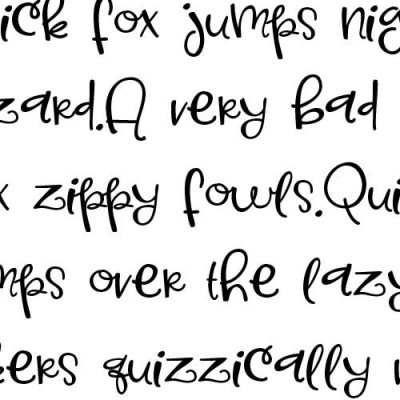 ick fox jumps nig
zard.A very bad
x zippy fowls.Qui
mps over the lazy
kers quizzically